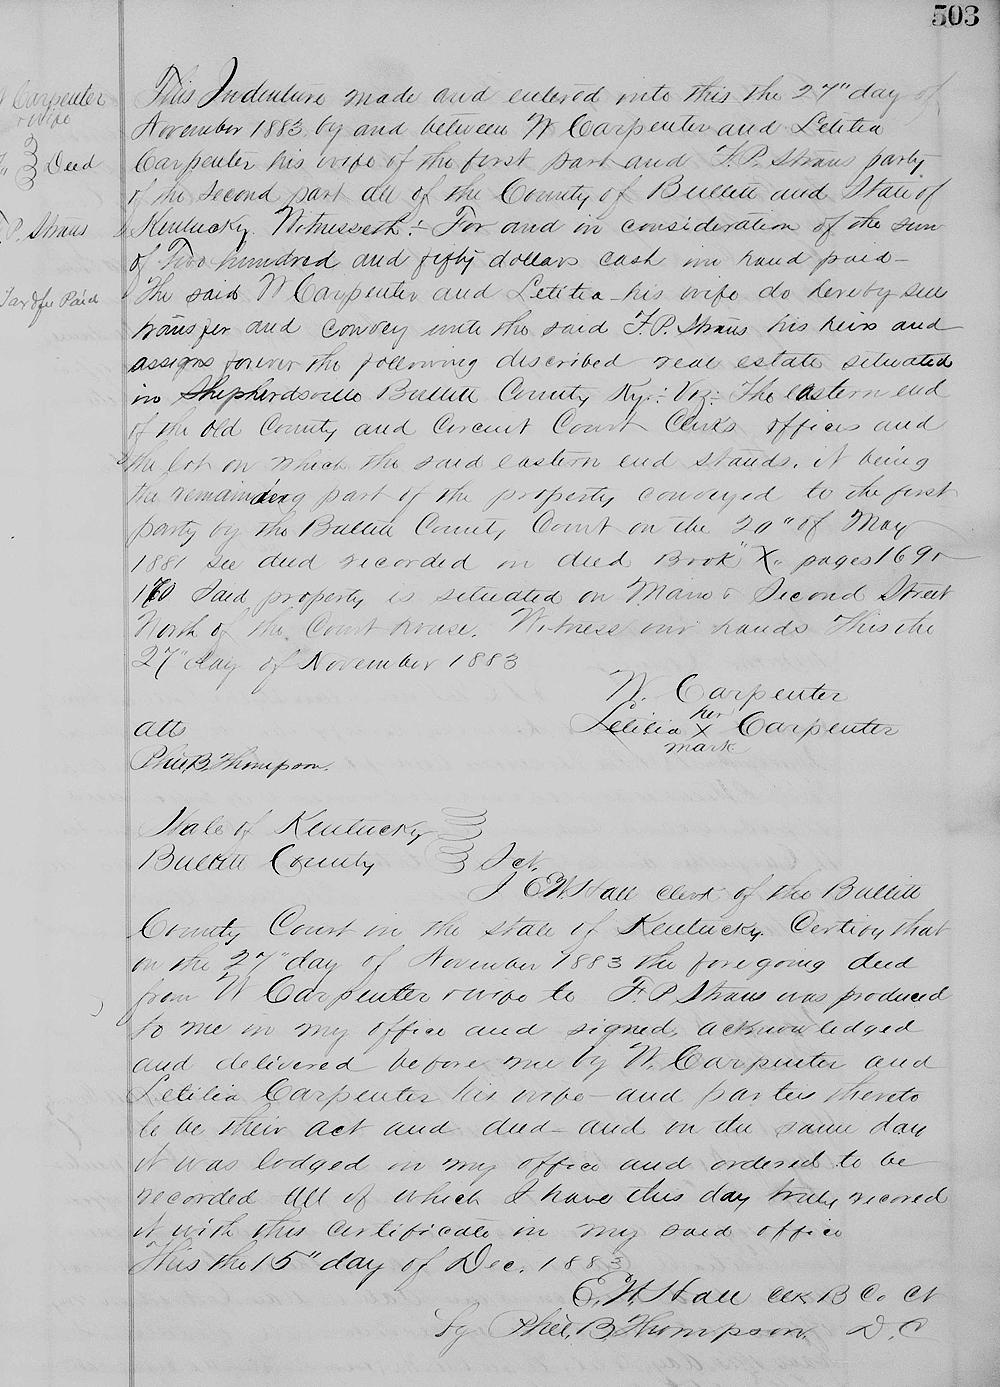 503
W Carpenter
& Wife
Deed
F.P. Straus
Tax & fee Paid
This Indenture made and entered into this the 27" day of
November 1883 by and between W Carpenter and Letitia
Carpenter his wife of the first part and F.P. Straus party
of the second part all of the County of Bullitt and State of
Kentucky. Witnesseth :- For and in consideration of the sum
of Two hundred and fifty dollars cash in hand paid -
The said W Carpenter and Letitia his wife do hereby sell
transfer and convey unto the said F.P. Straus his heirs and
assigns forever the following described real estate situated
in Shepherdsville Bullitt County Ky :- Viz :- The eastern end
of the old County and Circuit Court Clerks offices and
the lot on which the said eastern end stands. it being
the remaining part of the property conveyed to the first
party by the Bullitt County Court on the 20" of May
1881 see deed recorded in deed Book "X" pages 169 &
170 Said property is situated on Main & Second Street
North of the Court house. Witness our hands this the
27" day of November 1883
W. Carpenter
her
Letitia X Carpenter
mark
att
Phil B. Thompson.
State of Kentucky
Bullitt County Sct.
I E.W. Hall clerk of the Bullitt
County Court in the state of Kentucky. Certify that
on the 27" day of November 1883 the foregoing deed
from W Carpenter & wife to F.P Straus was produced
to me in my office and signed, acknowledged
and delivered before me by W. Carpenter and
Letitia Carpenter his wife - and parties thereto
to be their act and deed - and on the same day
it was lodged in my office and ordered to be
recorded all of which I have this day truly recored
it with this certificate in my said office
This the 15" day of Dec. 1883
E.W. Hall Clk B Co Ct
By Phil. B. Thompson. D.C